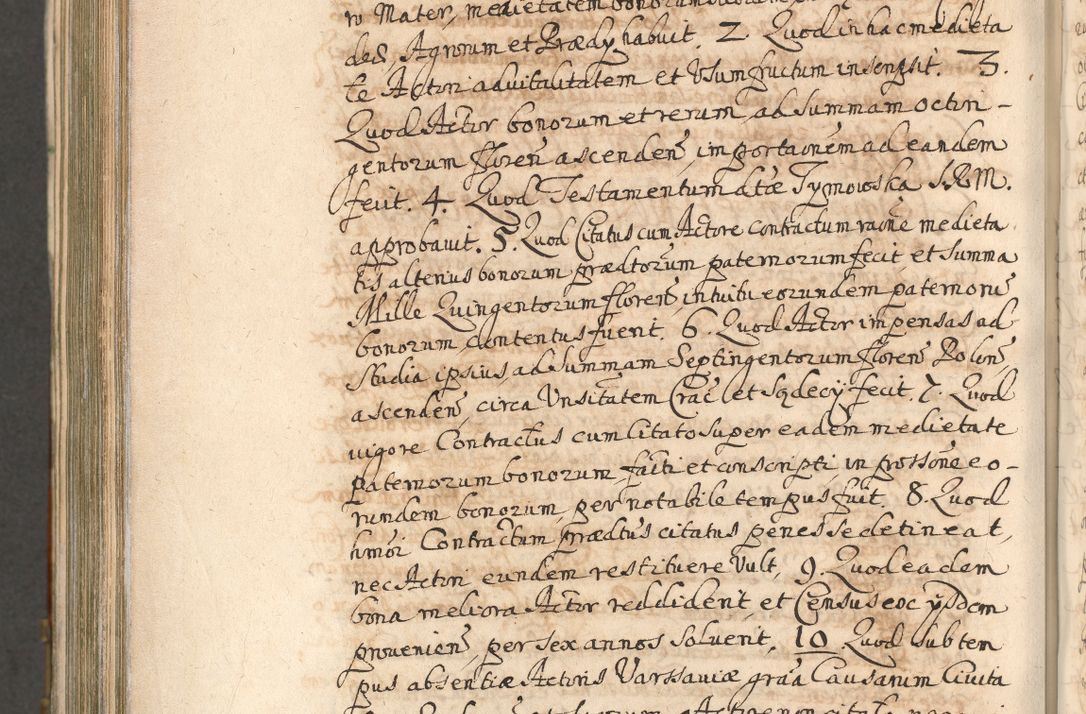 ro Mater, medietatem bonorum
des Agrorum et Prædy habuit. 2. Quod in hac medieta
te Actori advitalitatem et Usumfructum inscripsit. 3.
Quod Actor bonorum et rerum ad summam octin-
gentorum floren̄ ascenden̄, importaōnem ad eandem
fecit. 4. Quod Testamentum dtæ Tymowska S.R.M.
approbavit. 5. Quod Citatus cum Actore contractum raōne medieta
tis alterius bonorum prædtorum paternorum fecit, et summa
Mille Quingentorum floren̄, intuitu eorundem paternoru̅
bonorum, contentus fuerit. 6. Quod Actor impensas ad
Studia ipsius, ad summam Septingentorum floren̄ Polon̄,
ascenden̄, circa Vnsitatem Crac̄, et Sządecy fecit. 7. Quod
vigore Contractus cum Citato super eadem medietate
paternorum bonorum, facti et conscripti, in possōne eo-
rundem bonorum, per notabile tempus fuit. 8. Quod
hmōi Contractum prædtus citatus penes se detineat,
nec Actori eundem restituere Vult, 9. Quod eadem
bona meliora Actor reddiderit, et Census eoc ypsdem
provenien̄, per sex annos solverit, 10. Quod sub tem
pus absentiæ Actoris Varssaviæ gra̅a Causarum Civita